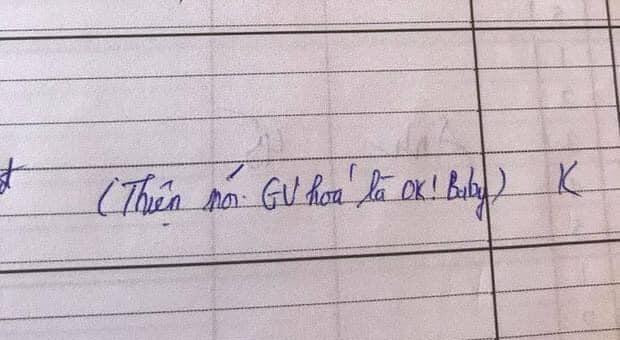 (Thiện nói. GV hoá là OK! Baby) K